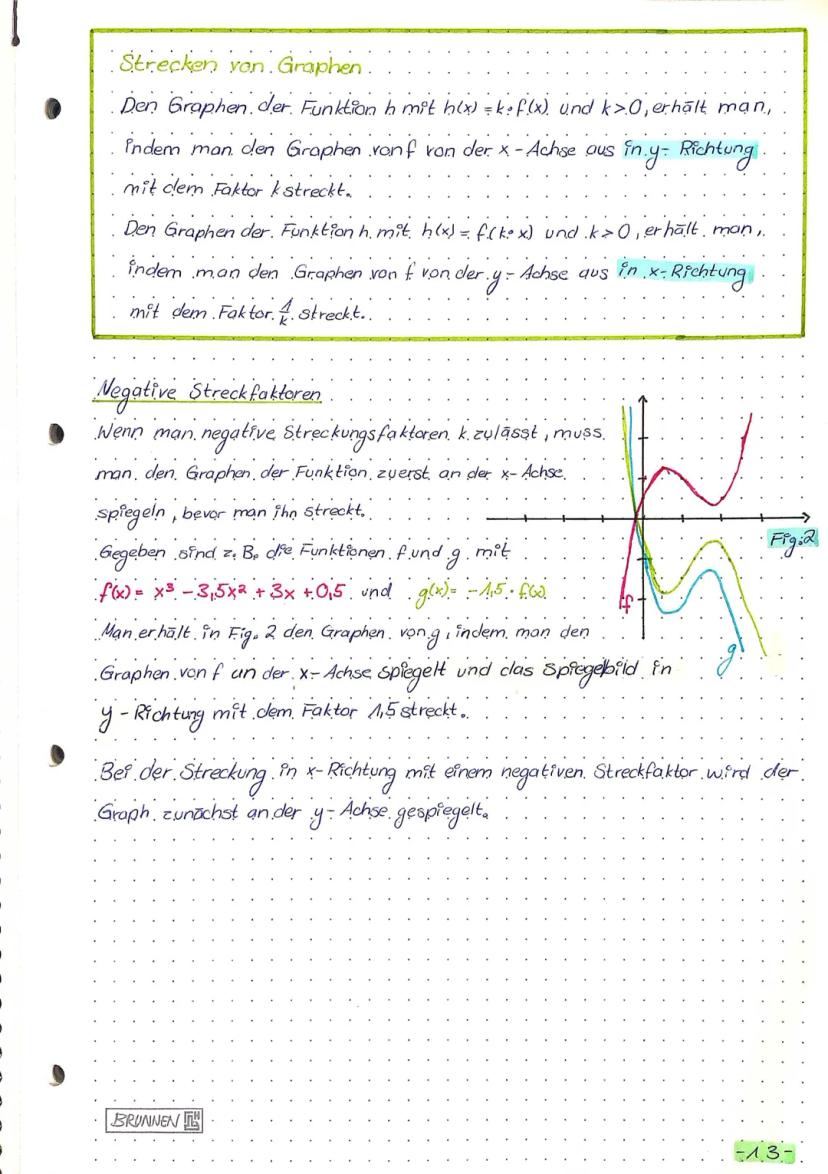 Strecken von Graphen
Den Graphen der Funktion h mit h(x) = k • f(x) und k > 0, erhält man,
indem man den Graphen von f von der x-Achse aus in y-Richtung
mit dem Faktor k streckt.
Den Graphen der Funktion h mit h(x) = f(k • x) und k > 0, erhält man,
indem man den Graphen von f von der y-Achse aus in x-Richtung
mit dem Faktor 1/k streckt.
Negative Streckfaktoren
Wenn man negative Streckungsfaktoren k zulässt, muss
man den Graphen der Funktion zuerst an der x-Achse
spiegeln, bevor man ihn streckt.
Fig. 2
Gegeben sind z. B. die Funktionen f und g mit
f(x) = x³ - 3,5x² + 3x + 0,5 und g(x) = -1,5 • f(x)
f
Man erhält in Fig. 2 den Graphen von g, indem man den
g
Graphen von f an der x-Achse spiegelt und das Spiegelbild in
y-Richtung mit dem Faktor 1,5 streckt.
Bei der Streckung in x-Richtung mit einem negativen Streckfaktor wird der
Graph zunächst an der y-Achse gespiegelt.
BRUNNEN
-13-